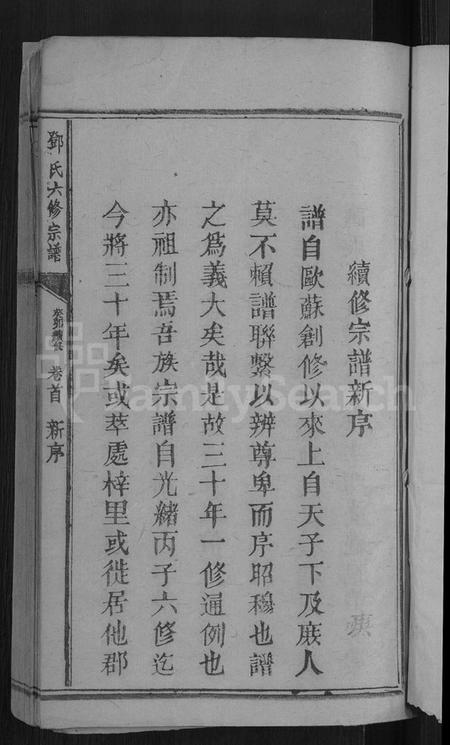 續修宗譜新序
譜自歐蘇創修以來上自天子下及庻人
莫不賴譜聯繫以辨尊卑而序昭穆也譜
之爲義大矣哉是故三十年一修通例也
亦祖制焉吾族宗譜自光緒丙子六修迄
今將三十年矣或萃處梓里或徙居他郡
鄧氏六修宗譜
癸卯續修
卷首
新序
FamilySearch